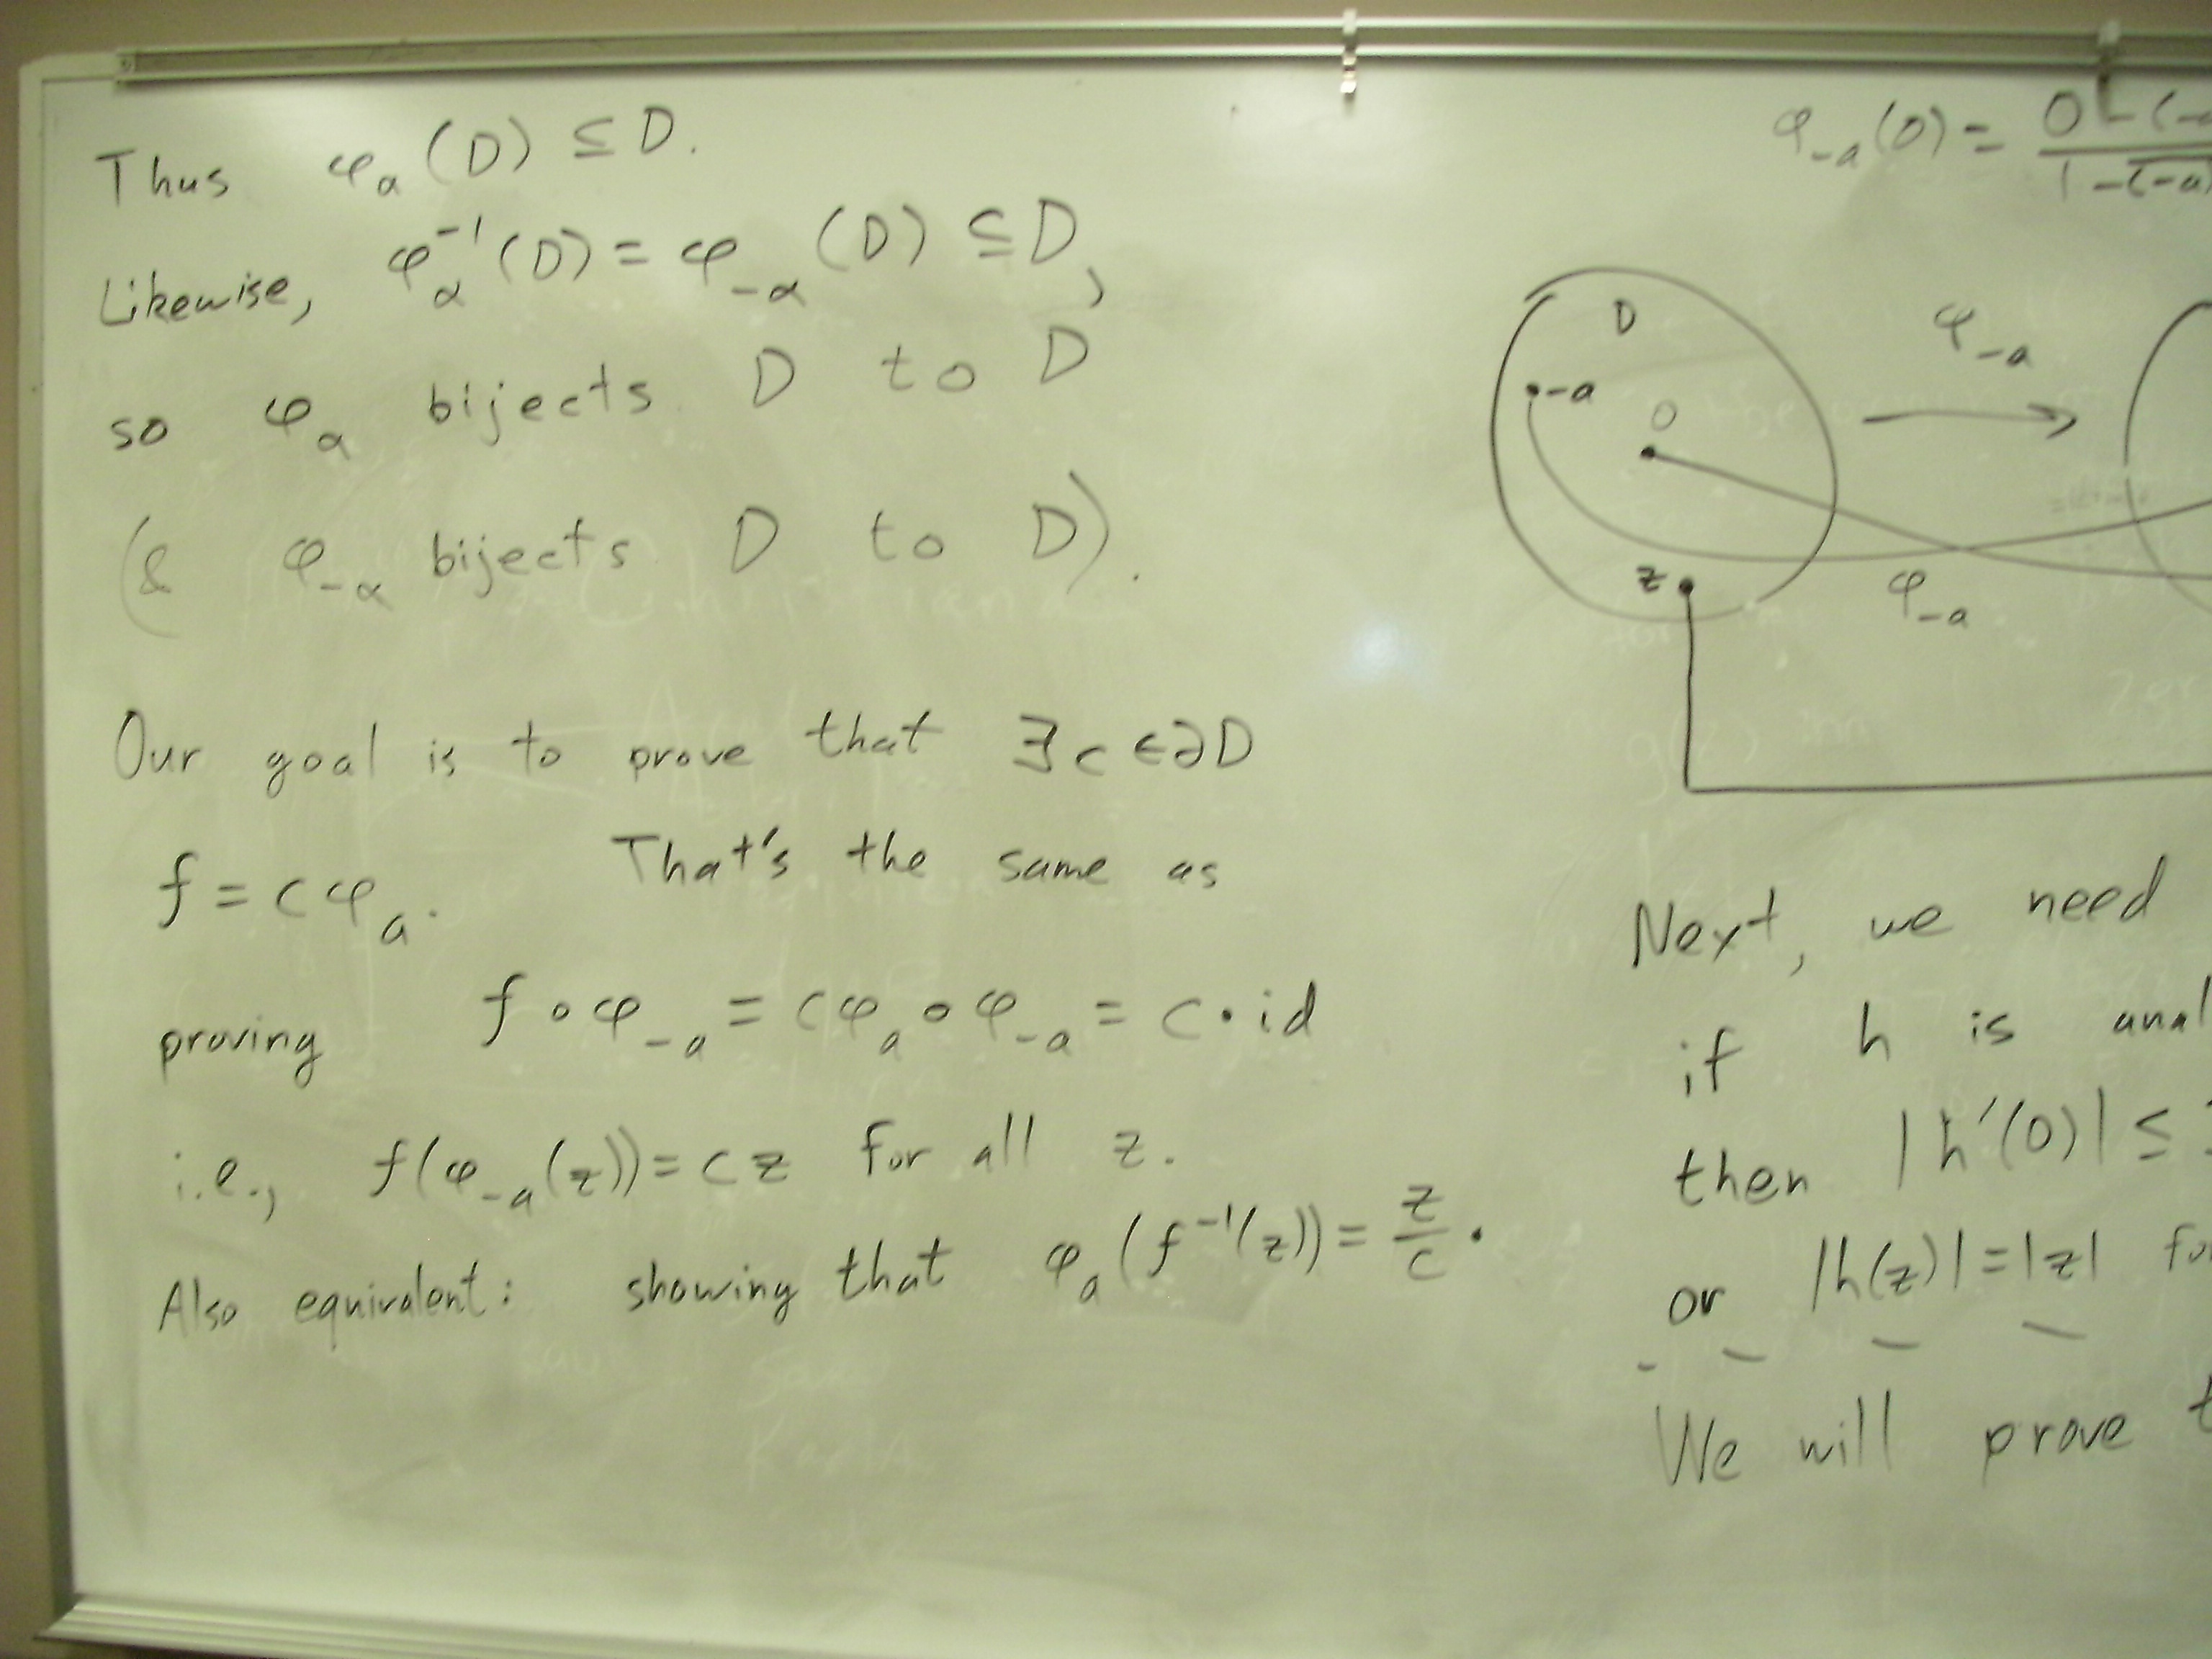 Thus φₐ(D) ⊆ D.
Likewise, φ_α⁻¹(D) = φ_-α(D) ⊆ D,
so φ_α bijects D to D
(& φ_-α bijects D to D).
Our goal is to prove that ∃ c ∈ ∂D
f = cφₐ. That's the same as
proving f ∘ φ_-a = cφₐ ∘ φ_-a = c · id
i.e., f(φ_-a(z)) = cz for all z.
Also equivalent: showing that φₐ(f⁻¹(z)) = z/c.
φ_-a(0) =
D
-a
0
z
φ_-a
φ_-a
Next, we need
if h is anal
then |h'(0)| ≤
or |h(z)| = |z|
We will prove